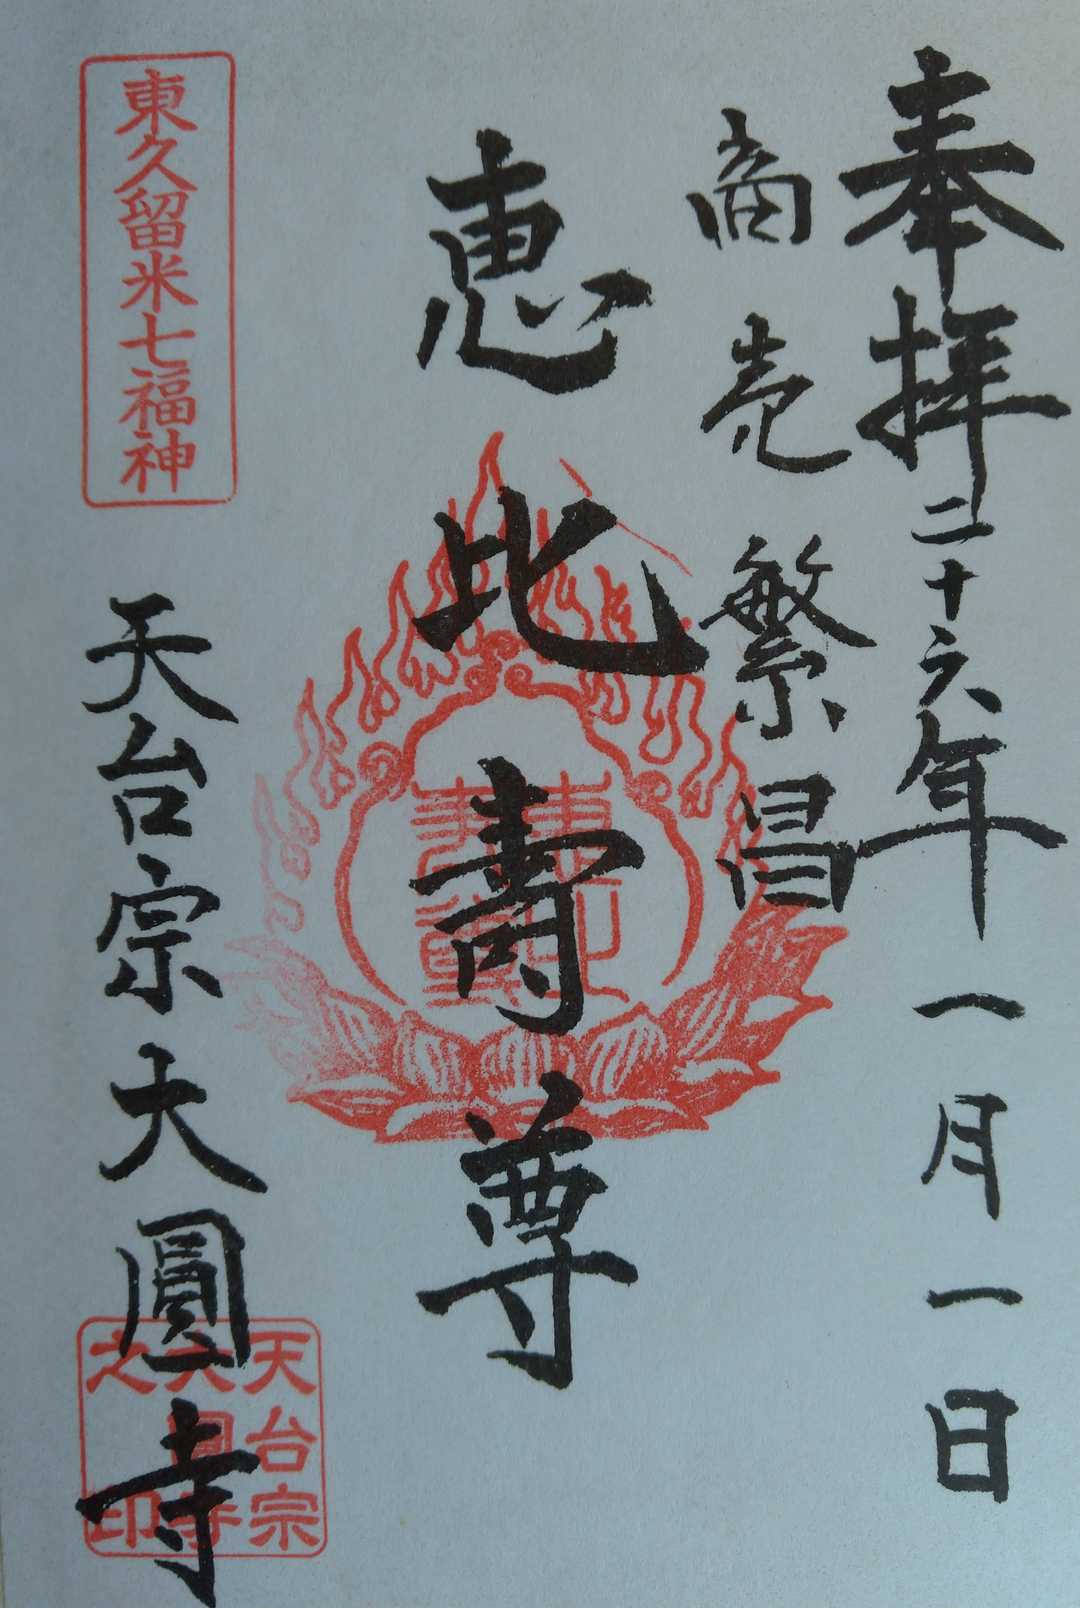 奉拝二十六年一月一日
商売繁昌
恵比寿尊
東久留米七福神
天台宗大圓寺
天台宗
大圓寺
之印